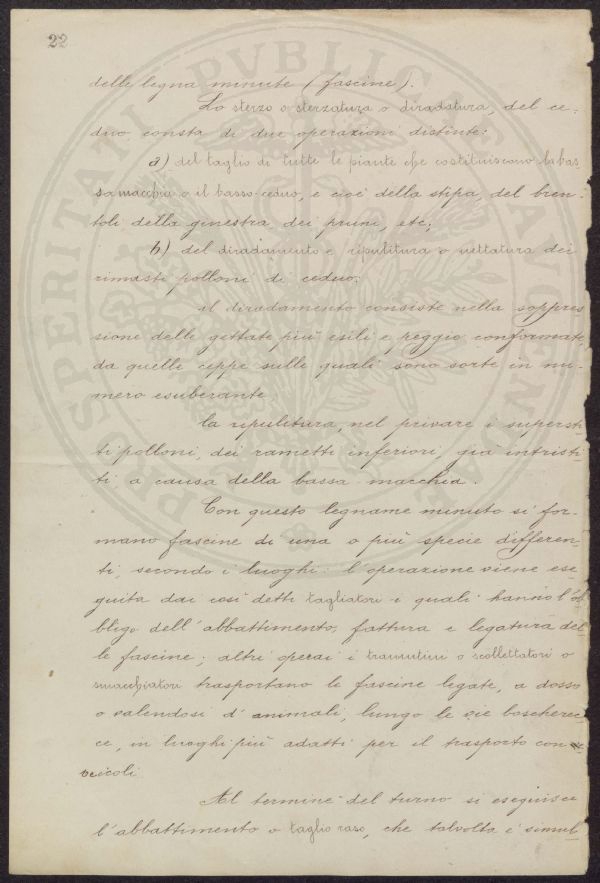 22
delle legna minute (fascine).
Lo sterzo o sterzatura o diradatura, del ce-
duo consta di due operazioni distinte:
a) del taglio di tutte le piante che costituiscono la bas-
sa macchia o il basso ceduo, e cioè della stipa, del bren-
toli della ginestra dei pruni, etc;
b) del diradamento e ripulitura o nettatura dei
rimasti polloni di ceduo;
il diradamento consiste nella soppres
sione delle gettate più esili e peggio conformate
da quelle ceppe sulle quali sono sorte in nu-
mero esuberante;
la ripulitura, nel privare i supersti-
ti polloni, dei rametti inferiori, già intristi-
ti a causa della bassa macchia.
Con questo legname minuto si for-
mano fascine di una o più specie differen-
ti, secondo i luoghi: l'operazione viene ese-
guita dai così detti tagliatori i quali hanno l'ob
bligo dell'abbattimento, fattura e legatura del-
le fascine; altri operai i tramutini o scollettatori o
smacchiatori trasportano le fascine legate, a dosso
o valendosi d'animali, lungo le vie boscherec-
ce, in luoghi più adatti per il trasporto con
veicoli.
Al termine del turno si eseguisce
l'abbattimento o taglio raso, che talvolta è simul-
PROSPERITATI PVBLICAE AVGENDAE